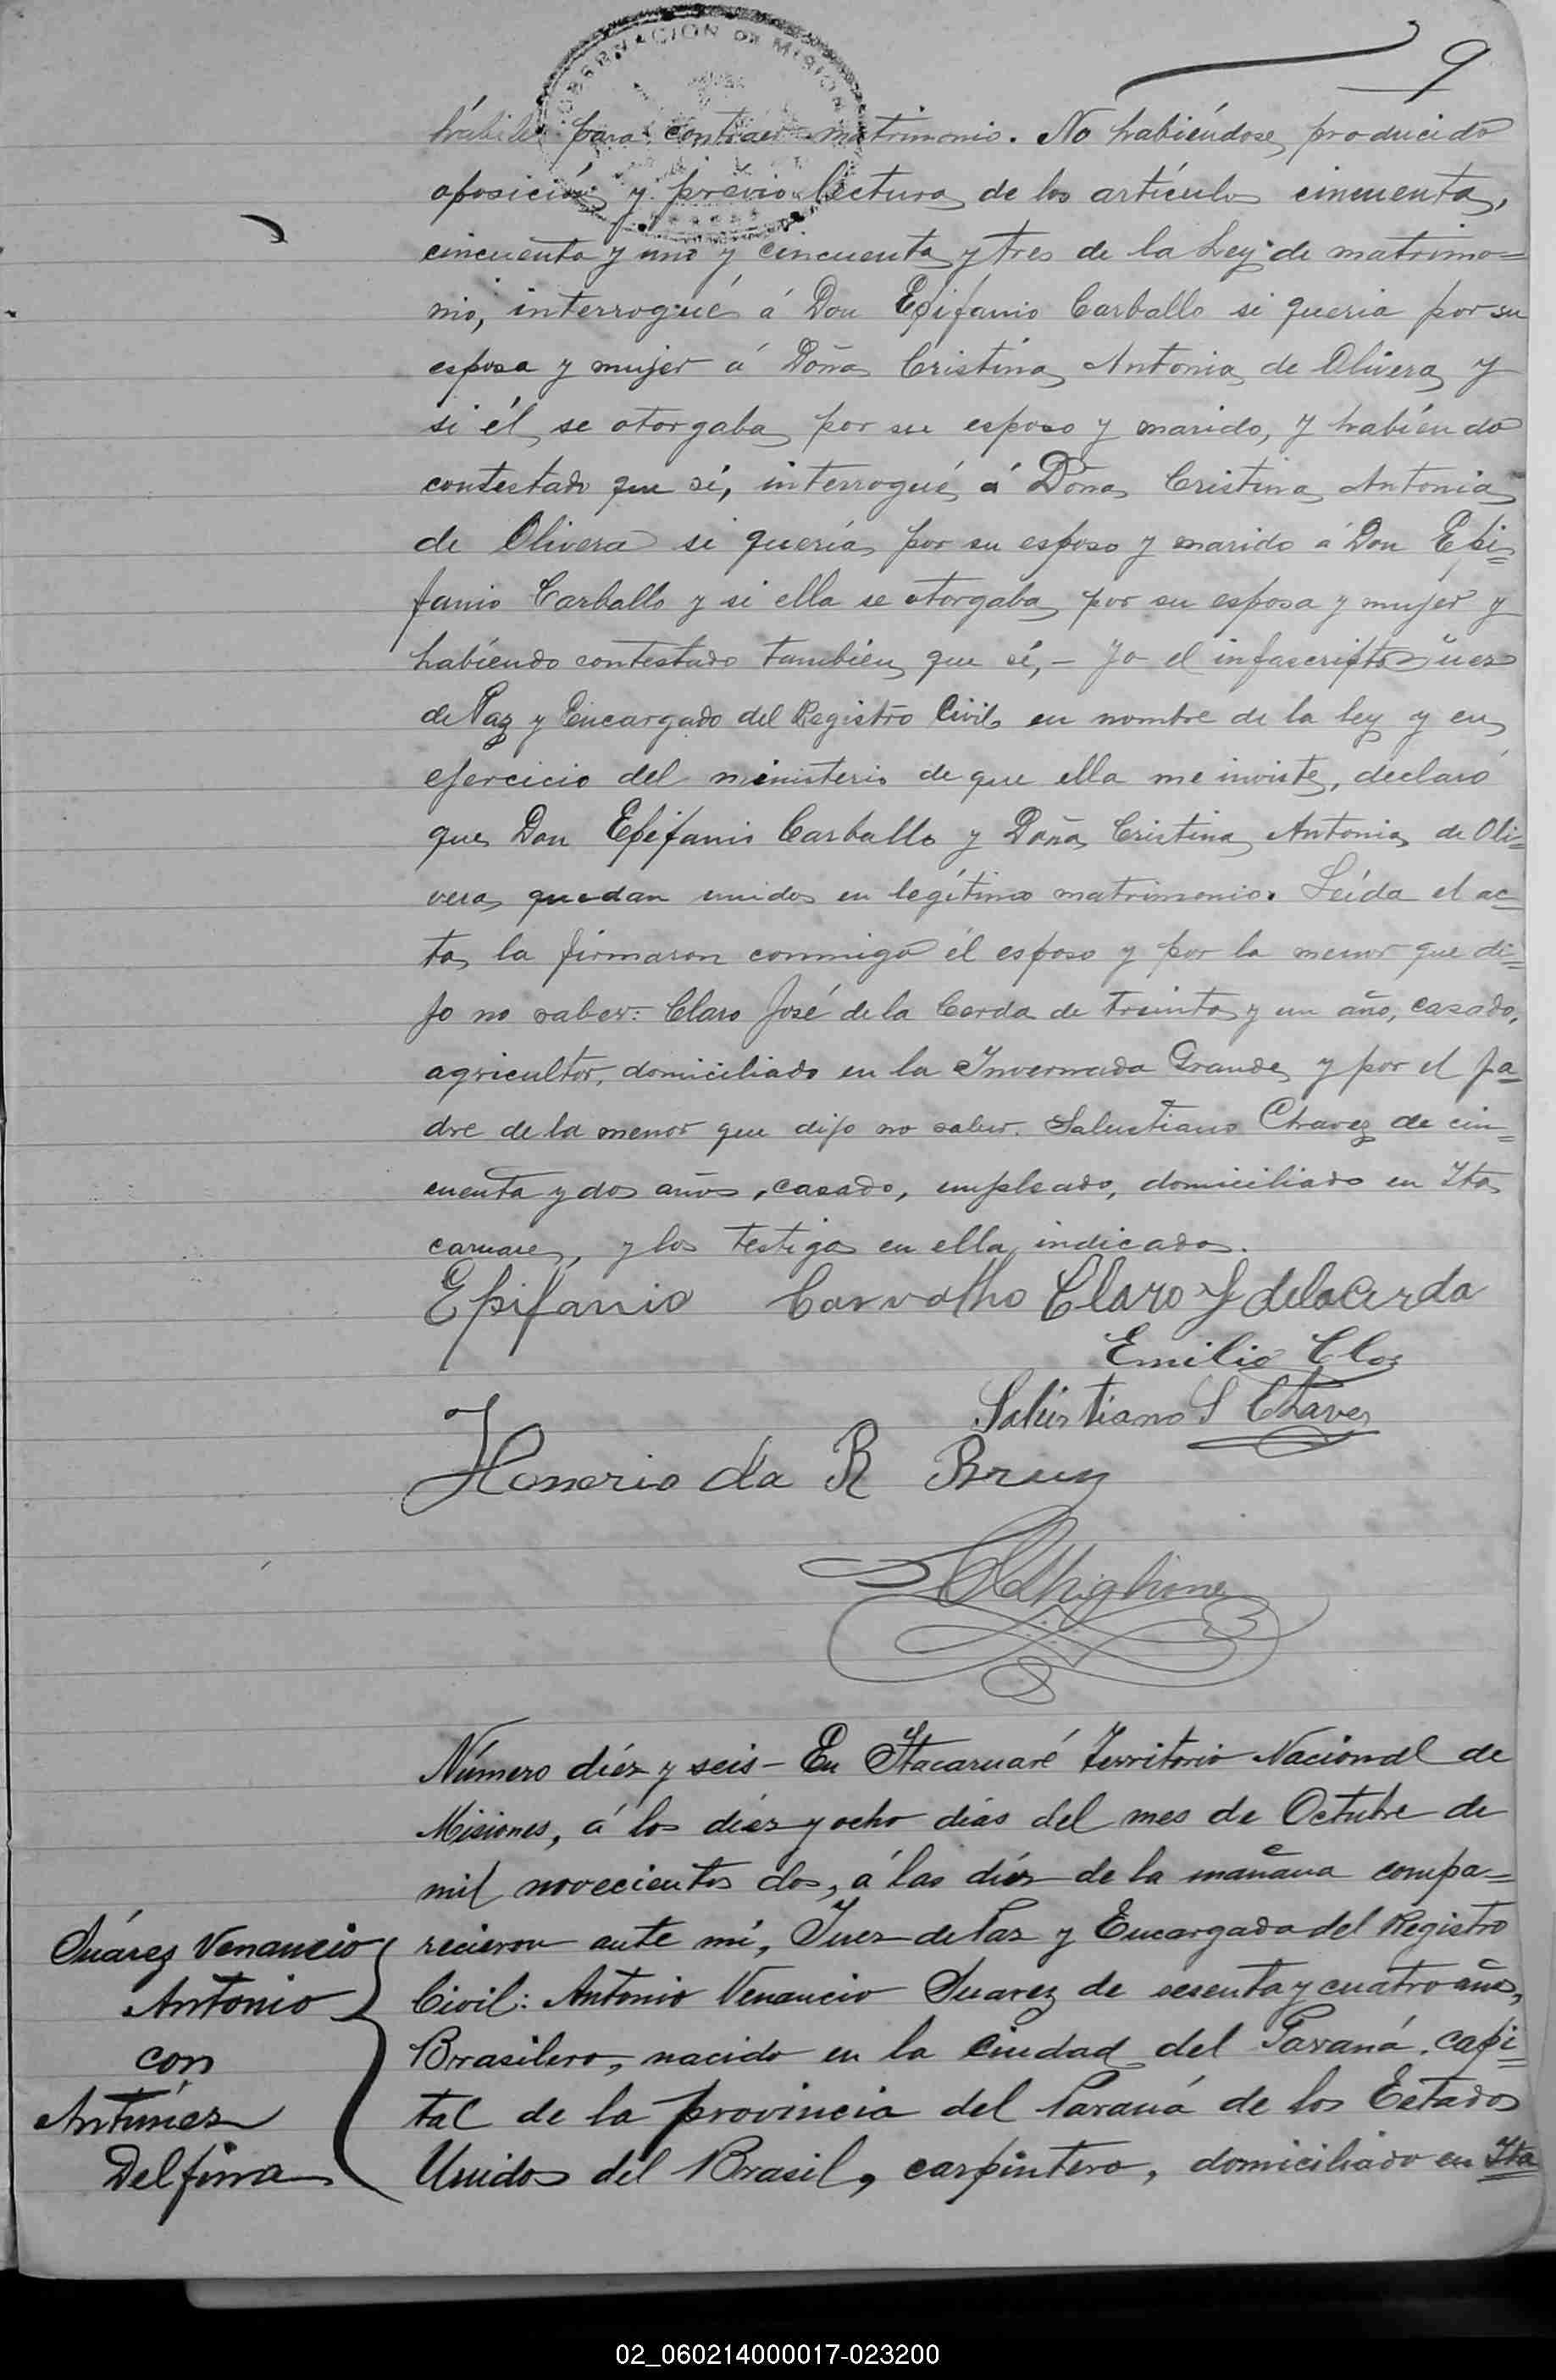 9
GOBERNACION DE MISIONES
hábiles para contraer matrimonio. No habiéndose producido
oposición y prévio lectura de los artículos cincuenta,
cincuenta y uno y cincuenta y tres de la Ley de matrimo=
nio, interrogué á Don Epifanio Carballo si queria por su
esposa y mujer á Doña Cristina Antonia de Olivera y
si él se otorgaba por su esposo y marido, y habiendo
contestado que sí, interrogué á Doña Cristina Antonia
de Olivera si quería por su esposo y marido á Don Epi=
fanio Carballo y si ella se otorgaba por su esposa y mujer y
habiendo contestado tambien que sí, - Yo el infascripto Juez
de Paz y Encargado del Registro Civil en nombre de la ley y en
ejercicio del ministerio de que ella me inviste, declaró
que Don Epifanio Carballo y Doña Cristina Antonia de Oli=
vera quedan unidos en legítimo matrimonio. Leída el ac=
ta la firmaron conmigo él esposo y por la menor que di=
jo no saber: Claro José de la Cerda de treinta y un año, casado,
agricultor, domiciliado en la Invernada Grande y por el pa=
dre de la menor que dijo no saber. Salustiano Chavez de cin=
cuenta y dos años, casado, empleado, domiciliado en Ita
caruare, y los testigos en ella indicados.
Epifanio Carvalho Claro J delacerda
Emilio Clos
Salústiano S Chaves
Honorio da R Bruz
Número diéz y seis - En Itacaruaré Territorio Nacional de
Misiones, á los diéz y ocho dias del mes de Octubre de
mil novecientos dos, á las diéz de la mañana compa=
recieron ante mí, Juez de Paz y Encargado del Registro
Civil: Antonio Venancio Suarez de sesenta y cuatro años,
Brasilero, nacido en la Ciudad del Paraná, capi=
tal de la provincia del Paraná de los Estados
Unidos del Brasil, carpintero, domiciliado en Ita
Suárez Venancio
Antonio
con
Antúnez
Delfina
02_060214000017-023200